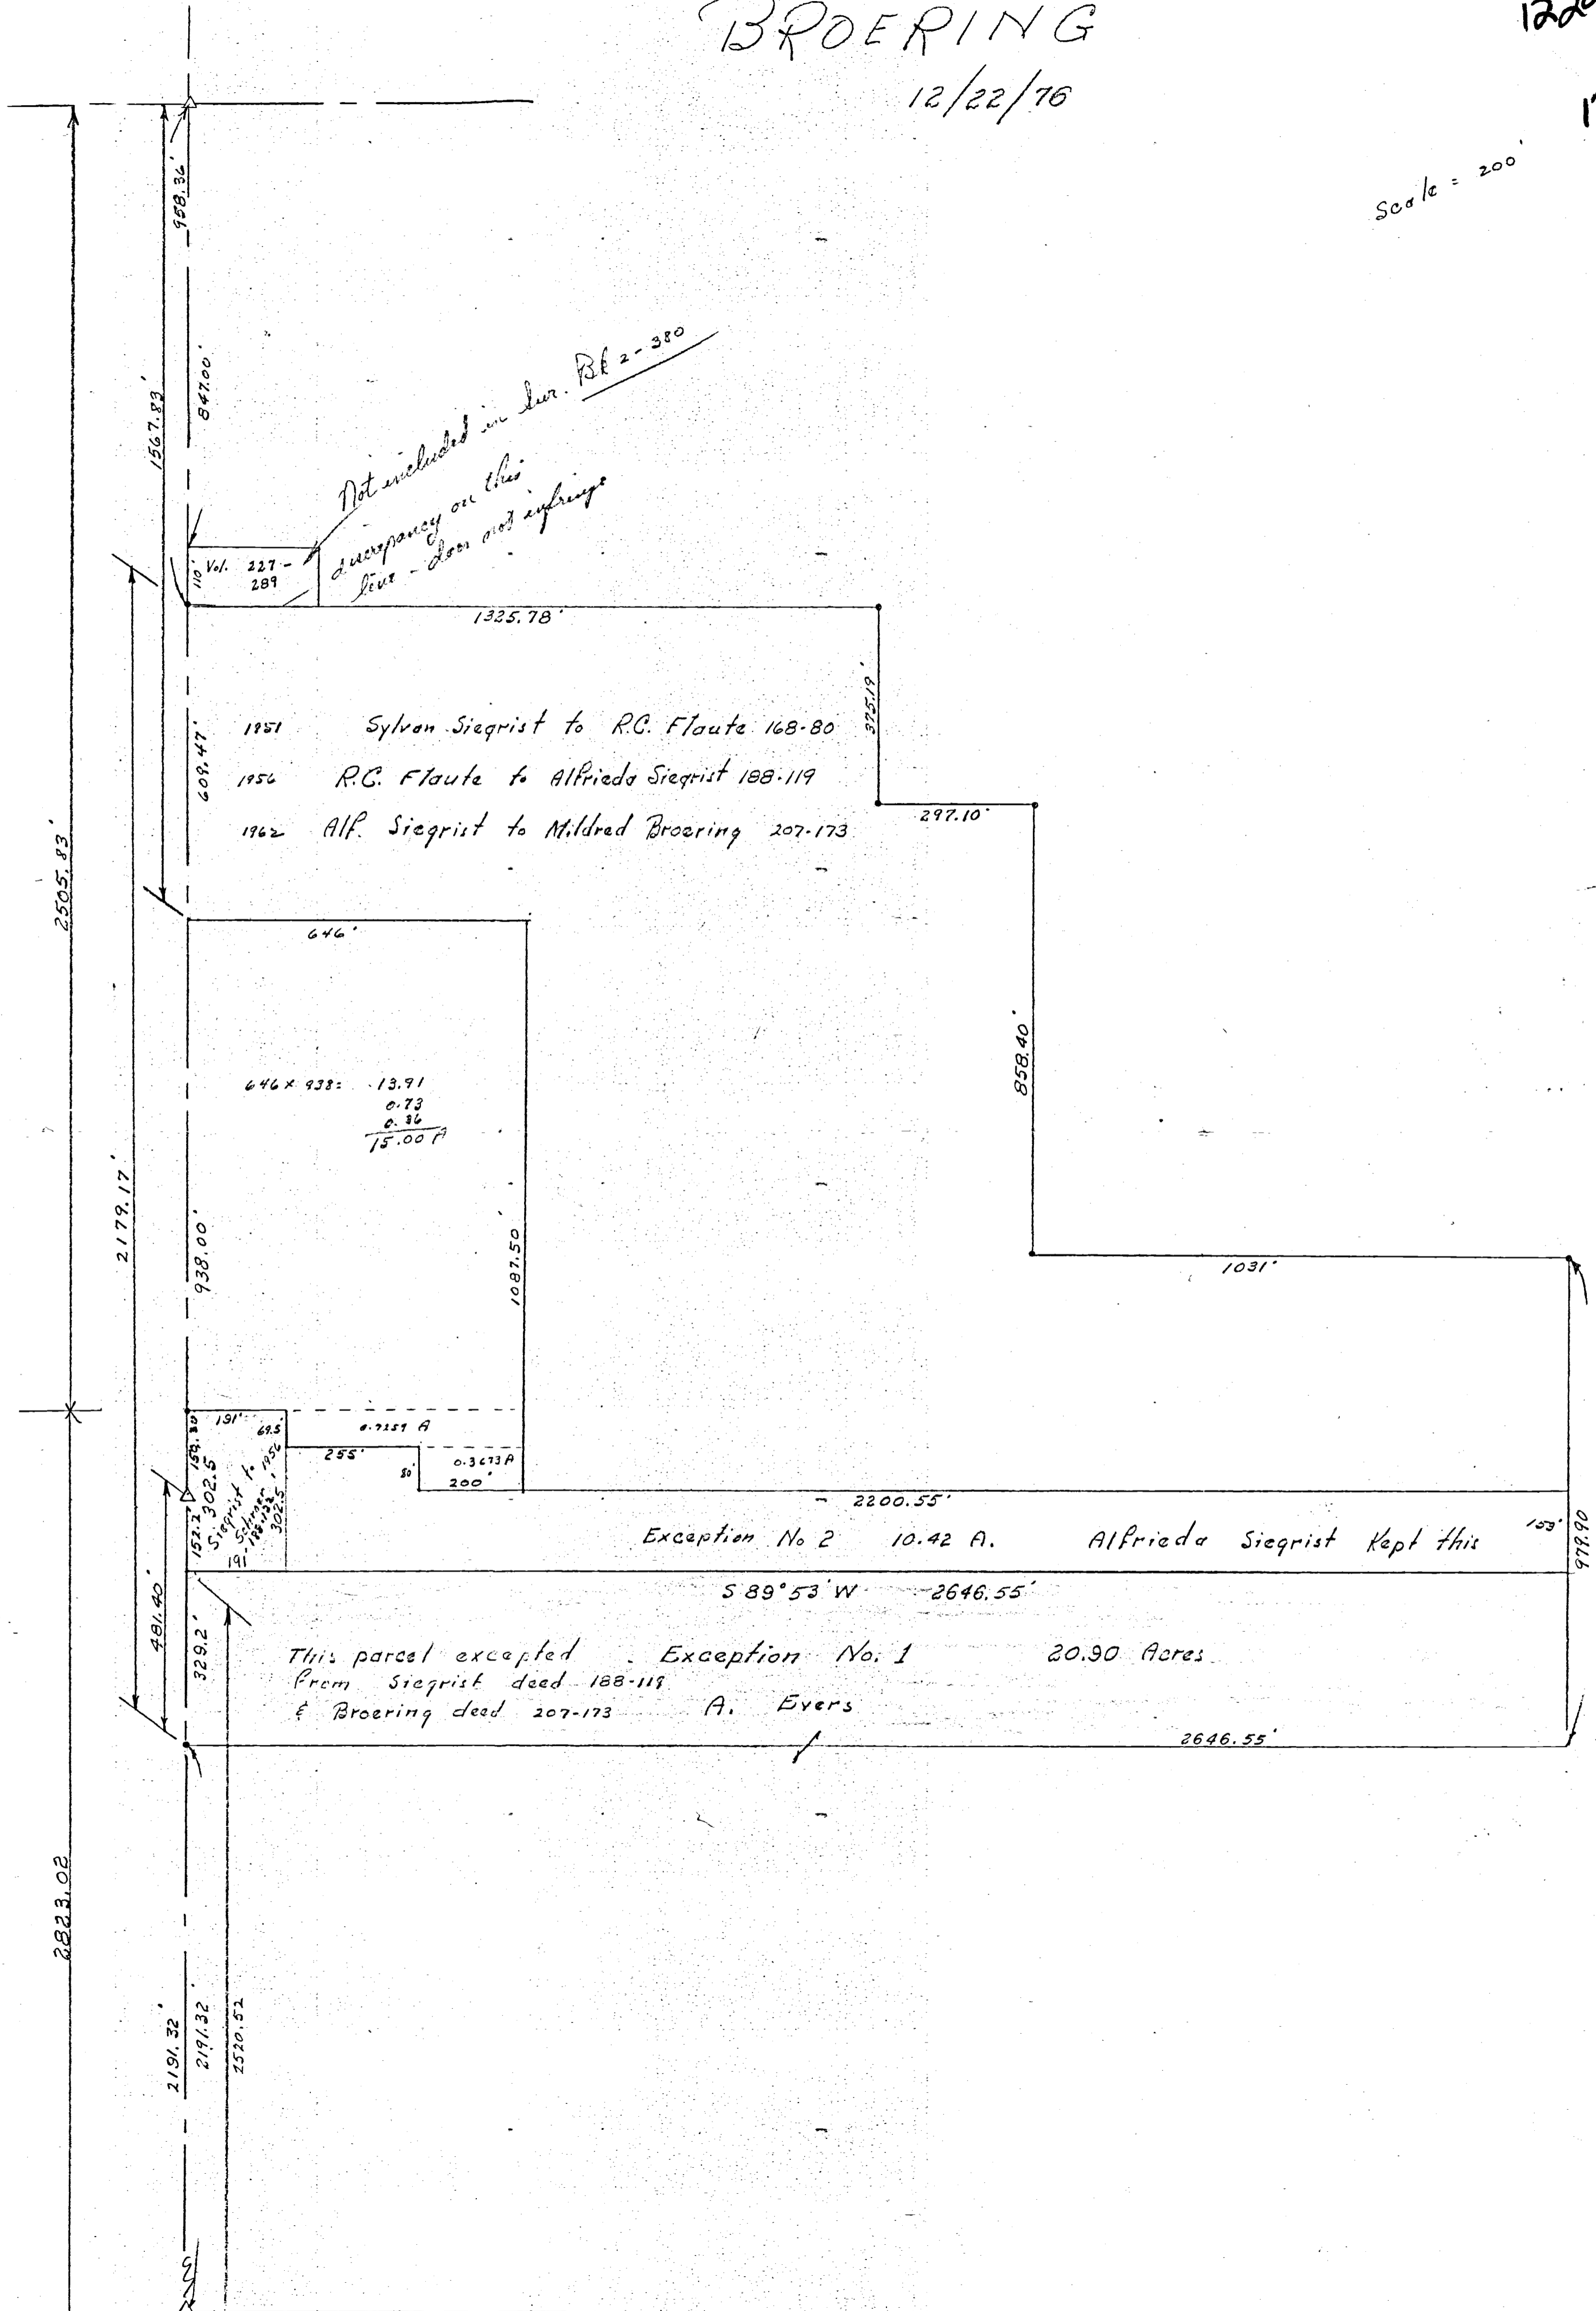 BROERING
12/22/76
Scale = 200'
958.36'
847.00'
1567.83'
Not included in Sur. Bk 2-380
discrepancy on this
line - does not infringe
Vol. 227-
289
110
1325.78'
375.19'
609.47'
1951 Sylvan Siegrist to R.C. Flaute 168-80
1956 R.C. Flaute to Alfrieda Siegrist 188-119
1962 Alf. Siegrist to Mildred Broering 207-173
297.10'
2505.83'
646'
858.40'
646 x 938 = 13.91
0.73
0.36
15.00 A
2179.17'
938.00'
1087.50'
1031'
191'
69.5'
0.7259 A
255'
80'
0.3673 A
200'
302.5
Siegrist to
Schroer 1956
188-122
302.5'
152.2
191'
2200.55'
Exception No 2 10.42 A. Alfrieda Siegrist Kept this
159'
979.90
S 89° 53' W 2646.55'
481.40'
329.2'
This parcel excepted Exception No. 1 20.90 Acres
from Siegrist deed 188-119
& Broering deed 207-173 A. Evers
2646.55'
2823.02
2191.32'
2191.32'
2520.52